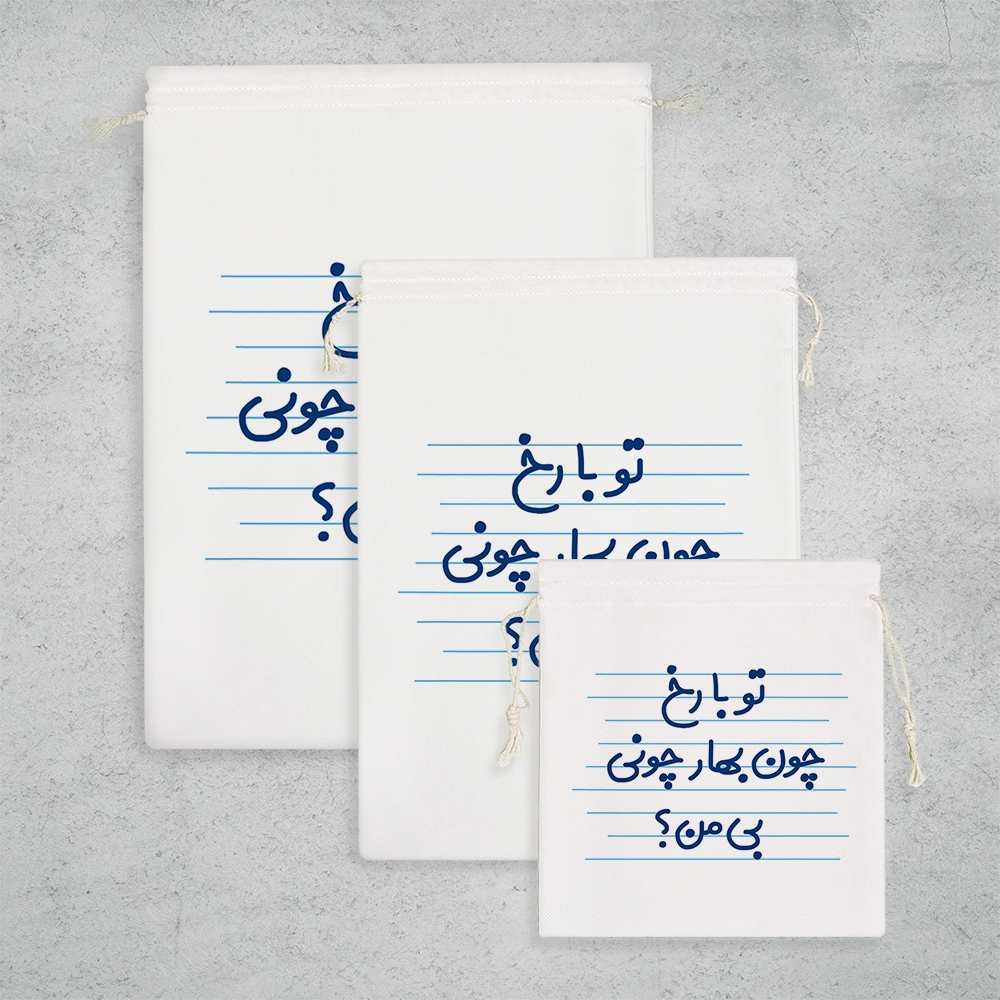 چونی
تو با رخ
چون بهار چونی
تو با رخ
چون بهار چونی
بی من؟